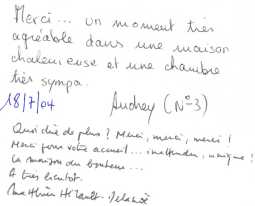 Merci... un moment très
agréable dans une maison
chaleureuse et une chambre
très sympa.
18/7/04 Audrey (N°3)
Quoi dire de plus? Merci, merci, merci!
Merci pour votre accueil... inattendu, unique!
La maison du bonheur...
A très bientôt.
Matthieu